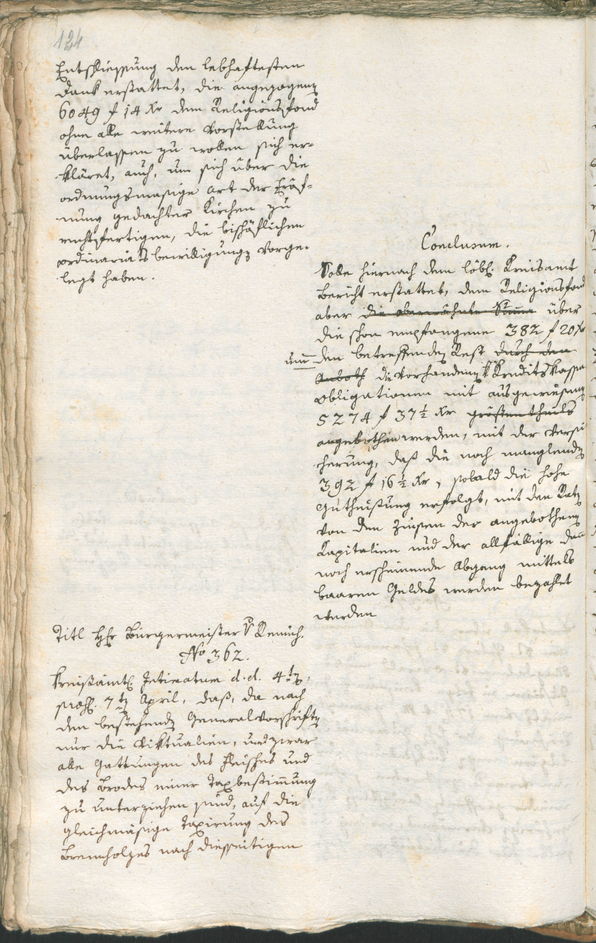 124
Entschliessung den lebhaftesten
Dank erstattet, die angezogenen
6049 f 14 Xr dem Religionsfond
ohne alle weitere Vorstellung
überlassen zu wollen sich er-
kläret, auch, um sich über die
ordnungsmäsige Art der
nung gedachter Kirchen zu
rechtfertigen, die bischöflichen
ordinariats bewilligung vorge-
legt haben.
Conclusum.
Solle hiernach dem löbl. Kreisamt
Bericht erstattet, dem Religionsfond
aber die oberwähnte Summe über
die schon empfangene 382 f 20 Xr
um den betreffenden Rest durch den
Anboth die vorhandenen Kreditskassa
Obligationen mit ausgewiesenen
5274 f 37 ½ Xr größtentheils
angebothen werden, mit der Versi
cherung, daß die noch manglenden
392 f 16 ½ Xr, sobald die hohe
Gutheissung erfolgt, mit den Ratis
von den Zinsen der angebothenen
Kapitalien und der allfällige da
noch erscheinende Abgang mittels
baaren Geldes werden bezahlet
werden
Titl Hr Bürgermeister v Remich.
No 362.
Kreisämtl Intimatum d. d. 4ten,
praes. 7ten April, daß, da nach
den bestehenden Generalvorschriften
nur die Viktualien, und zwar
alle Gattungen des Fleisches und
des Brodes einer Taxbestimmung
zu unterziehen sind, auf die
gleichmäsige Taxirung des
Brennholzes nach diesseitigen